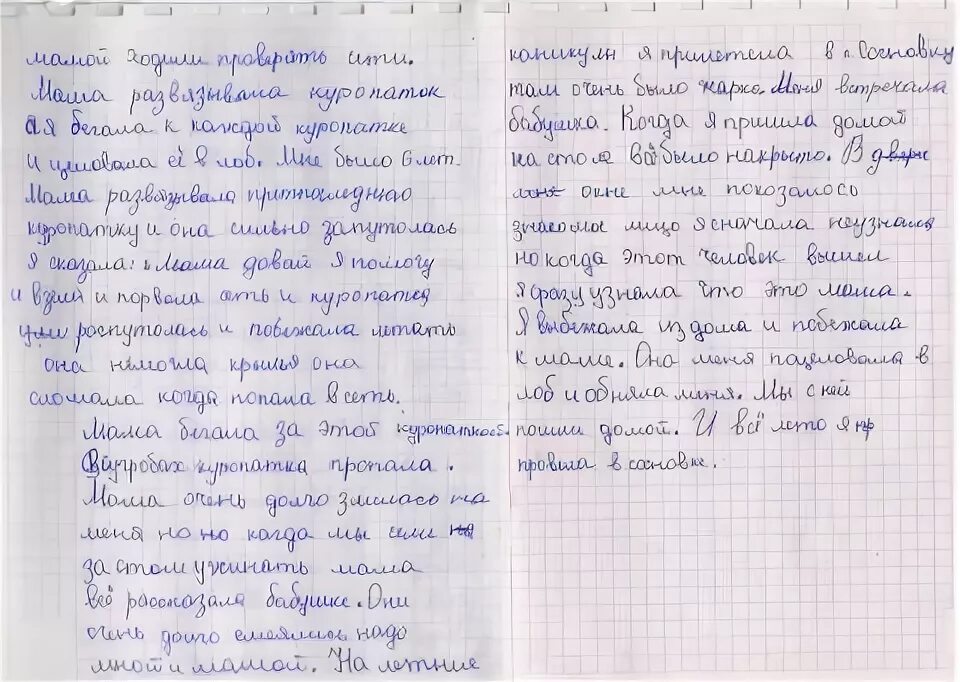 мамой ходили проверять сити.
Мама развязывала куропаток
А я бегала к каждой куропатке
и целовала её в лоб. Мне было 6 лет.
Мама развязывала
куропатку и она сильно запуталась
я сказала: "Мама довай я помогу
и взяла и порвала сеть и куропатка
распуталась и побежала летать
она немогла крылья она
сломала когда попала в сеть.
Мама бегала за этой куропаткой.
В сугробах куропатка пропала.
Мама очень долго злилась на
меня но но когда мы сели
за стол ужинать мама
всё рассказала бабушке. Они
очень долго смеялись надо
мной и мамой. На летние
каникулы я прилетела в п. Сосновку
там очень было жарко. Меня встречала
бабушка. Когда я пришла домой
на столе всё было накрыто. В двери
мне окне мне показалось
знакомое лицо я сначала неузнала
но когда этот человек вышел
я сразу узнала что это мама.
Я выбежала из дома и побежала
к маме. Она меня поцеловала в
лоб и обняла меня. Мы с ней
пошли домой. И всё лето я пр
провила в сосновке.